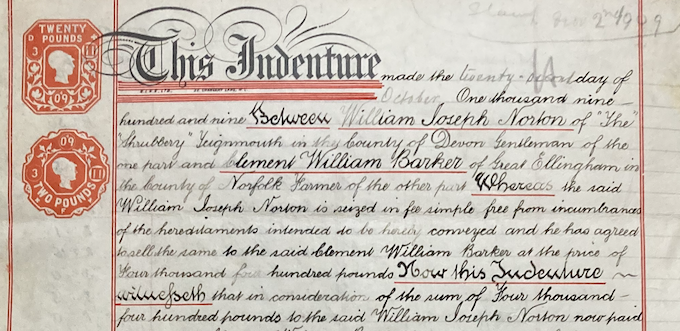 Stamp Nov 2nd 1909
TWENTY
POUNDS
D
3
III
09
This Indenture made the twenty-second day of
October One thousand nine
hundred and nine Between William Joseph Norton of "The
Shrubbery" Teignmouth in the County of Devon Gentleman of the
one part and Clement William Barker of Great Ellingham in
the County of Norfolk Farmer of the other part Whereas the said
William Joseph Norton is seized in fee simple free from incumbrances
of the hereditaments intended to be hereby conveyed and he has agreed
to sell the same to the said Clement William Barker at the price of
Four thousand four hundred pounds Now this Indenture
witnesseth that in consideration of the sum of Four thousand
four hundred pounds to the said William Joseph Norton now paid
09
3
III
TWO POUNDS